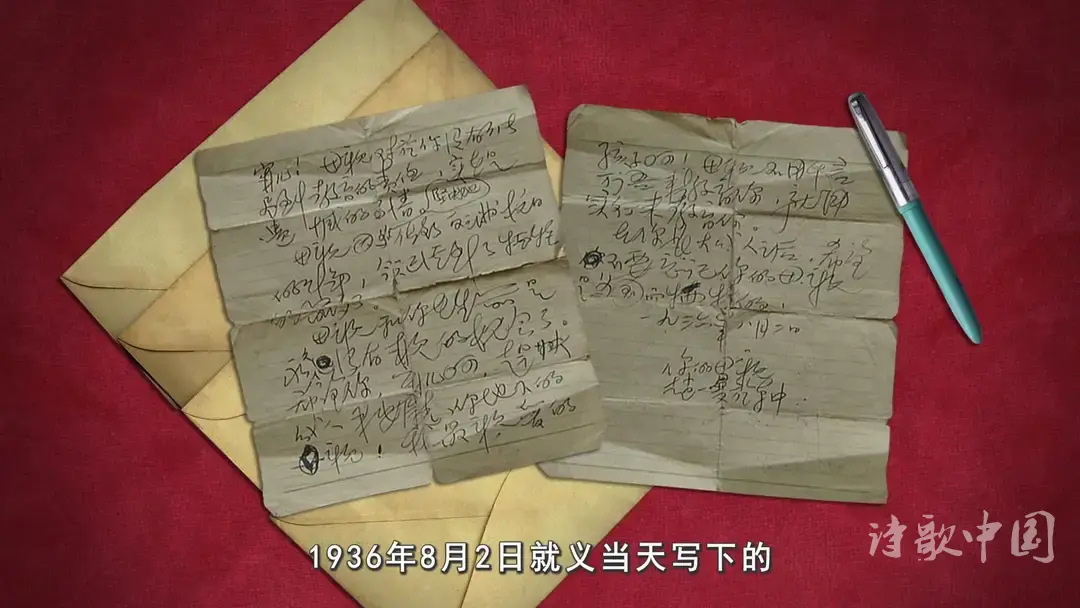 宁儿！母亲对于你没有能
尽到教育的责任，实在是
遗憾的事情。
母亲因为坚决地做了反满抗日
的斗争，今天已经到了牺牲
的前夕了。
母亲和你在生前是
永久没有再见的机会了。
希望你，宁儿啊！赶快
成人，来安慰你地下的
母亲！我最亲爱的
孩子啊！母亲不用千言
万语来教育你，就用
实行来教育你。
在你长大成人之后，希望
不要忘记你的母亲
是为国而牺牲的！
一九三六年八月二日
你的母亲
赵一曼于车中
诗歌中国
1936年8月2日就义当天写下的